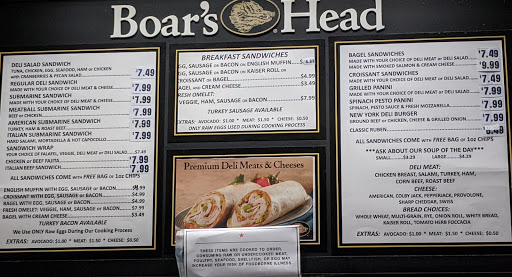 Boar's Head
DELI SALAD SANDWICH
TUNA, CHICKEN, EGG, SEAFOOD, HAM or CHICKEN
with CRANBERRIES & PECAN SALAD $7.49
REGULAR DELI SANDWICH
MADE WITH YOUR CHOICE OF DELI MEAT & CHEESE $7.99
SUBMARINE SANDWICH
MADE WITH YOUR CHOICE OF DELI MEAT & CHEESE $7.99
MEATBALL SUBMARINE SANDWICH
BEEF or CHICKEN $7.99
AMERICAN SUBMARINE SANDWICH
TURKEY, HAM & ROAST BEEF $7.99
ITALIAN SUBMARINE SANDWICH
HARD SALAMI, MORTADELLA & HOT CAPOCOLLO $7.99
SANDWICH WRAP
YOUR CHOICE OF FALAFEL, VEGGIE, DELI MEAT or DELI SALAD $7.49
CHICKEN or BEEF FAJITA $7.99
ITALIAN BEEF SANDWICH $7.99
ALL SANDWICHES COME with FREE BAG or 1oz CHIPS
ENGLISH MUFFIN WITH EGG, SAUSAGE or BACON $4.99
CROISSANT WITH EGG, SAUSAGE or BACON $4.99
BAGEL WITH EGG, SAUSAGE or BACON $4.99
FRESH OMELET: VEGGIE, HAM, SAUSAGE or BACON $7.99
BAGEL WITH CREAM CHEESE $3.49
TURKEY BACON AVAILABLE
We Use ONLY Raw Eggs During Our Cooking Process
EXTRAS: AVOCADO: $1.00 * MEAT: $1.50 * CHEESE: $0.50
BREAKFAST SANDWICHES
EGG, SAUSAGE or BACON on ENGLISH MUFFIN
EGG, SAUSAGE or BACON on KAISER ROLL or
CROISSANT or BAGEL $4.99
BAGEL and CREAM CHEESE $3.49
FRESH OMELET:
VEGGIE, HAM, SAUSAGE or BACON $7.99
TURKEY SAUSAGE AVAILABLE
EXTRAS: AVOCADO: $1.00 * MEAT: $1.50 * CHEESE: $0.50
ONLY RAW EGGS USED DURING COOKING PROCESS
Premium Deli Meats & Cheeses
THESE ITEMS ARE COOKED TO ORDER,
CONSUMING RAW OR UNDERCOOKED MEAT,
POULTRY, SEAFOOD, SHELLFISH, OR EGG MAY
INCREASE YOUR RISK OF FOODBORNE ILLNESS
BAGEL SANDWICHES
MADE WITH YOUR CHOICE OF DELI MEAT or DELI SALAD $7.49
MADE WITH SMOKED SALMON & CREAM CHEESE $9.99
CROISSANT SANDWICHES
MADE WITH YOUR CHOICE OF DELI MEAT or DELI SALAD $7.49
GRILLED PANINI
MADE WITH YOUR CHOICE OF DELI MEAT & CHEESE $7.99
SPINACH PESTO PANINI
SPINACH, PESTO SAUCE & FRESH MOZZARELLA $7.99
NEW YORK DELI BURGER
GROUND BEEF or CHICKEN, CHEESE & GRILLED ONION $7.99
CLASSIC RUBEN
ALL SANDWICHES COME with FREE BAG of 1oz CHIPS
***ASK ABOUT OUR SOUP OF THE DAY***
SMALL $3.29 LARGE $4.29
DELI MEAT:
CHICKEN BREAST, SALAMI, TURKEY, HAM,
CORN BEEF, ROAST BEEF
CHEESE:
AMERICAN, COLBY JACK, PEPPERJACK, PROVOLONE,
SHARP CHEDDAR, SWISS
BREAD CHOICES:
WHOLE WHEAT, MULTI-GRAIN, RYE, ONION ROLL, WHITE BREAD,
KAISER ROLL, TOMATO HERB FOCCACIA
EXTRAS: AVOCADO: $1.00 * MEAT: $1.50 * CHEESE: $0.50